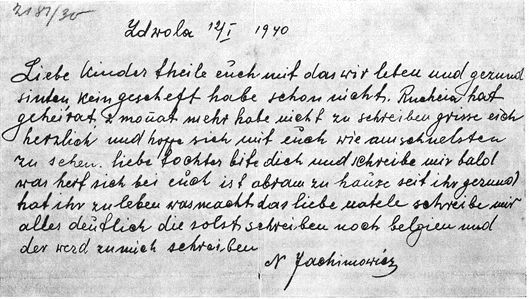 2187/30
Zdwola 12/I 1940
Liebe Kinder theile euch mit das wir leben und gezund
sind, kein gescheft habe schon nicht. hat
geheirat 2 monat mehr habe nicht zu schreiben grusse eich
herzlich und hoffe sich mit euch wie amschnelsten
zu sehen. liebe tochter bite dich und schreibe mir bald
was hert sich bei euch ist abram zu hause seit ihr gezund
hat ihr zu leben was macht das liebe natele schreibe mir
alles deutlich die solst schreiben noch belgien und
der werd zu mich schreiben
N Jachimowicz